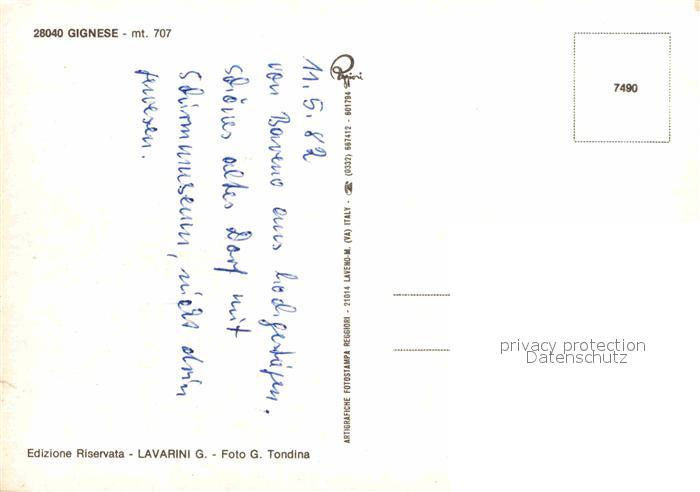 28040 GIGNESE - mt. 707
11.5.82
von Baveno aus hochgestiegen.
schönes altes Dorf mit
Schirmmuseum, nicht drin
gewesen.
Reggiori
ARTIGRAFICHE FOTOSTAMPA REGGIORI - 21014 LAVENO-M. (VA) ITALY - ☎ (0332) 667412 - 601794
7490
privacy protection
Datenschutz
Edizione Riservata - LAVARINI G. - Foto G. Tondina